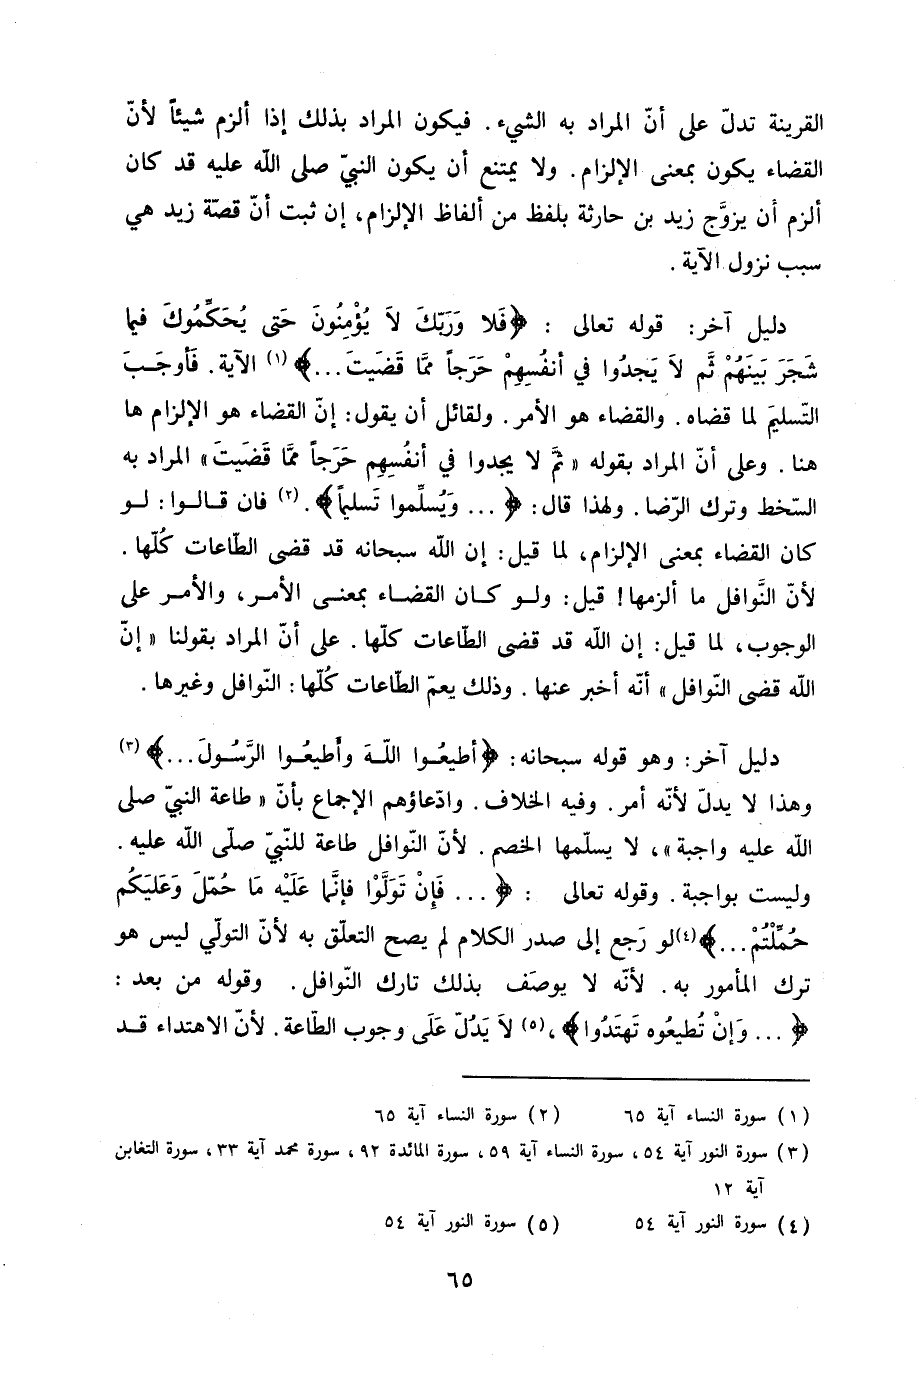 القرينة تدلّ على أنّ المراد به الشيء. فيكون المراد بذلك إذا ألزم شيئاً لأنّ
القضاء يكون بمعنى الإلزام. ولا يمتنع أن يكون النبيّ صلى الله عليه قد كان
ألزم أن يزوَّج زيد بن حارثة بلفظ من ألفاظ الإلزام، إن ثبت أنّ قصّة زيد هي
سبب نزول الآية.
دليل آخر: قوله تعالى : ﴿فَلا وَرَبِّكَ لاَ يُؤْمِنُونَ حَتى يُحَكِّمُوكَ فيما
شَجَرَ بَينَهُمْ ثُم لاَ يَجدُوا في أنفُسِهِمْ حَرَجاً ممَّا قَضَيتَ...﴾(١) الآية. فَأوجَبَ
التّسليمَ لما قضاه. والقضاء هو الأمر. ولقائل أن يقول: إنّ القضاء هو الإلزام ها
هنا. وعلى أنّ المراد بقوله «ثمَّ لا يجدوا في أنفُسِهِم حَرَجاً ممَّا قَضَيتَ» المراد به
السّخط وترك الرّضا. ولهذا قال: ﴿... وَيُسلِّموا تَسليماً﴾.(٢) فان قالوا: لو
كان القضاء بمعنى الإلزام، لما قيل: إن الله سبحانه قد قضى الطّاعات كُلّها.
لأنّ النَّوافل ما ألزمها! قيل: ولو كان القضاء بمعنى الأمر، والأمر على
الوجوب، لما قيل: إن الله قد قضى الطّاعات كلّها. على أنّ المراد بقولنا «إنّ
الله قضى النّوافل» أنّه أخبر عنها. وذلك يعمّ الطّاعات كُلّها: النّوافل وغيرها.
دليل آخر: وهو قوله سبحانه: ﴿أطيعُوا اللّهَ وأطيعُوا الرَّسُولَ...﴾(٣)
وهذا لا يدلّ لأنّه أمر. وفيه الخلاف. وادّعاؤهم الإجماع بأنّ «طاعة النبيّ صلى
الله عليه واجبة»، لا يسلّمها الخصم. لأنّ النّوافل طاعة للنّبيّ صلّى الله عليه.
وليست بواجبة. وقوله تعالى : ﴿... فَإِنْ تَوَلَّوْا فإنَّما عَلَيْه مَا حُمّلَ وَعَلَيكُم
حُمِّلْتُمْ...﴾(٤)لو رَجع إلى صدر الكلام لم يصح التعلّق به لأنّ التولّي ليس هو
ترك المأمور به. لأنّه لا يوصَف بذلك تارك النّوافل. وقوله من بعد:
﴿... وَإنْ تُطيعُوه تَهتَدُوا﴾،(٥) لاَ يَدُلّ عَلَى وجوب الطّاعة. لأنّ الاهتداء قد
(١) سورة النساء آية ٦٥ (٢) سورة النساء آية ٦٥
(٣) سورة النور آية ٥٤، سورة النساء آية ٥٩، سورة المائدة ٩٢، سورة محمد آية ٣٣، سورة التغابن
آية ١٢
(٤) سورة النور آية ٥٤ (٥) سورة النور آية ٥٤
٦٥